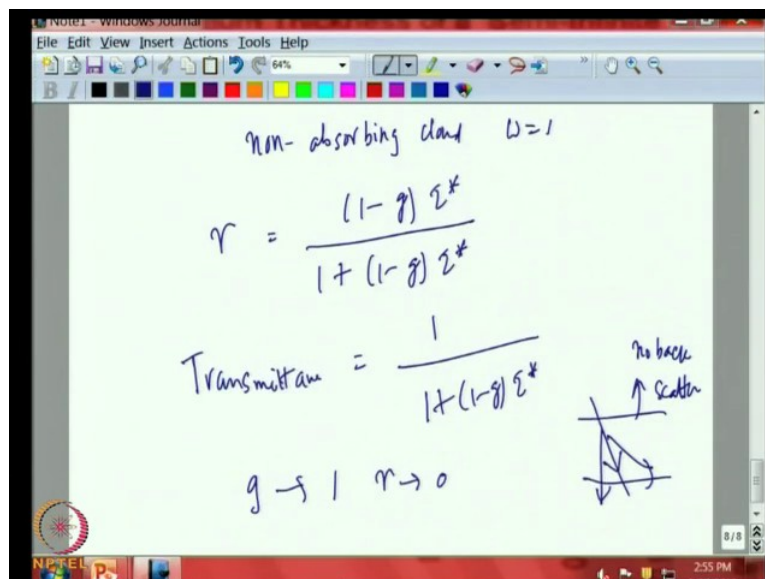 Note1 - Windows Journal
File Edit View Insert Actions Tools Help
64%
B I
non-absorbing cloud ω=1
r = (1-g) τ* / 1+(1-g) τ*
Transmittance = 1 / 1+(1-g) τ*
no back
scatter
g → 1 r → 0
8/8
NPTEL
2:55 PM